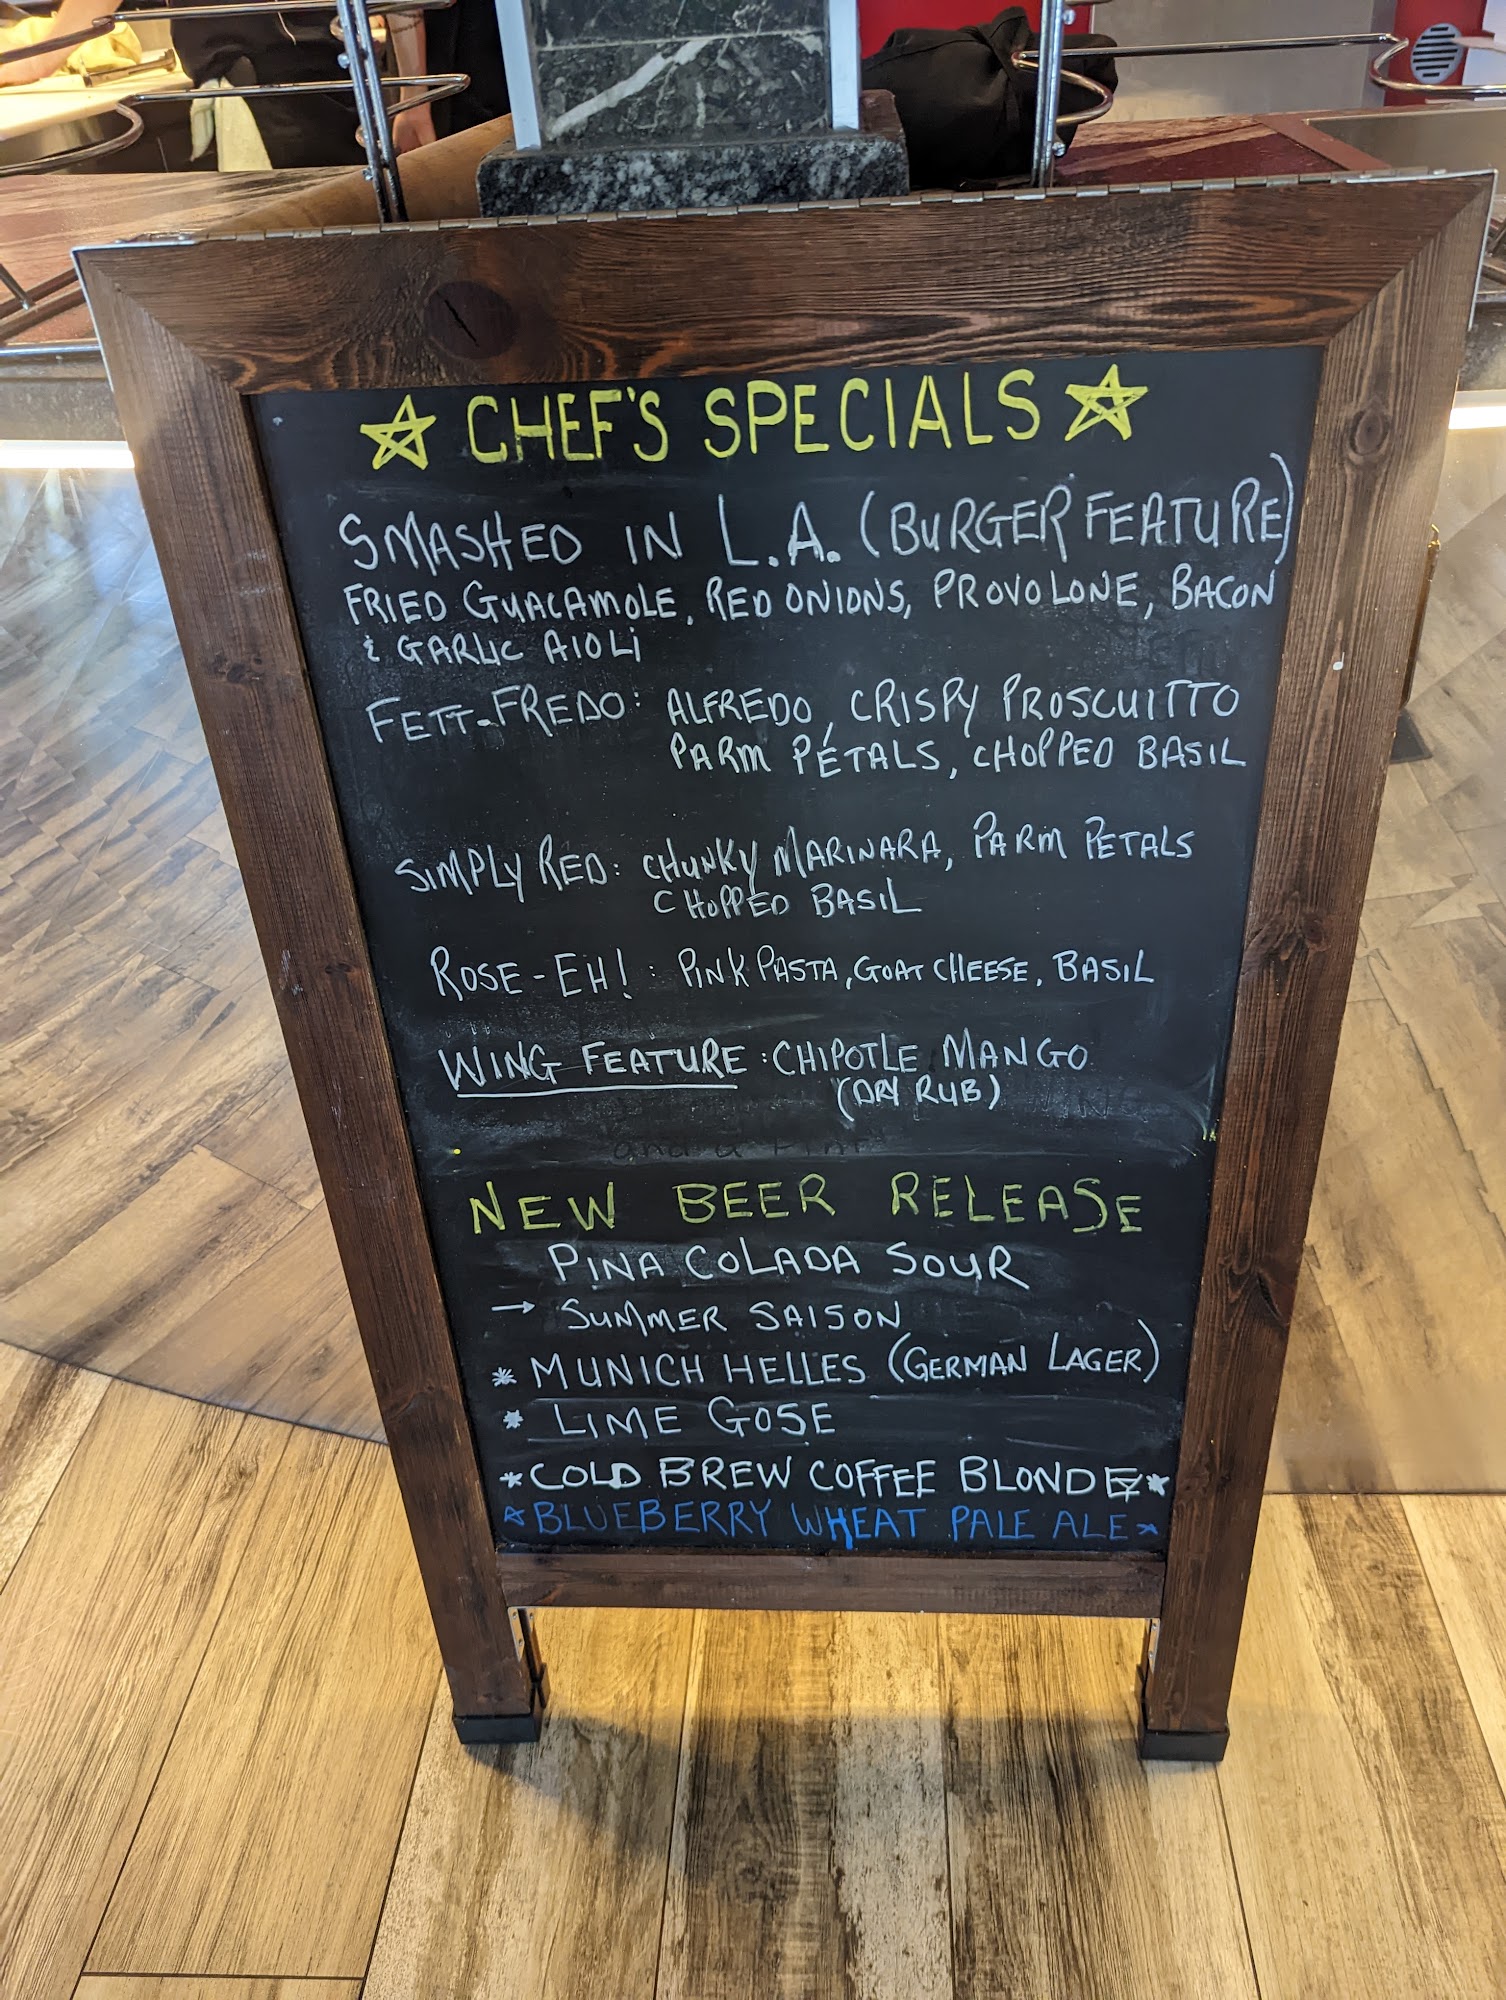 ☆ CHEF'S SPECIALS ☆
SMASHED IN L.A. (BURGER FEATURE)
FRIED GUACAMOLE, RED ONIONS, PROVOLONE, BACON
& GARLIC AIOLI
FETT-FREDO: ALFREDO, CRISPY PROSCUITTO
PARM PÉTALS, CHOPPED BASIL
SIMPLY RED: CHUNKY MARINARA, PARM PETALS
CHOPPED BASIL
ROSE-EH! : PINK PASTA, GOAT CHEESE, BASIL
WING FEATURE : CHIPOTLE MANGO
(DRY RUB)
NEW BEER RELEASE
PINA COLADA SOUR
→ SUMMER SAISON
* MUNICH HELLES (GERMAN LAGER)
* LIME GOSE
*COLD BREW COFFEE BLONDE*
☆BLUEBERRY WHEAT PALE ALE☆